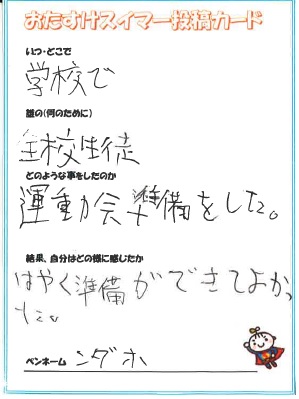 おたすけスイマー投稿カード
いつ・どこで
学校で
誰の(何のために)
全校生徒
どのような事をしたのか
運動会準備をした。
結果、自分はどの様に感じたか
はやく準備ができてよかっ
た。
ペンネーム ンダホ